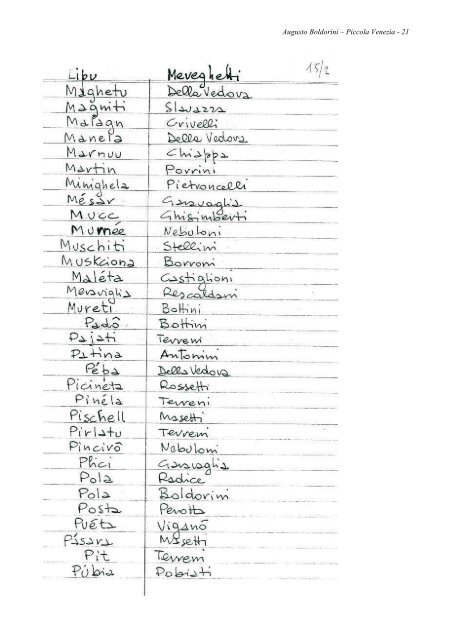 Augusto Boldorini – Piccola Venezia - 21
15/2
Libu Meveghetti
Maghetu Della Vedova
Magniti Slavazza
Malagn Crivelli
Manela Della Vedova
Marnuu Chiappa
Martin Porrini
Minighela Pietroncelli
Mésar Garavaglia
Mucc Ghisimberti
Mumée Nebuloni
Muschiti Stellini
Muskciona Borroni
Maléta Castiglioni
Meraviglia Rescaldani
Mureti Bottini
Padô Bottini
Pajati Terreni
Patina Antonini
Péba Della Vedova
Picinéta Rossetti
Pinéla Terreni
Pischell Masetti
Pirlatu Terreni
Pincirô Nebuloni
Phci Garavaglia
Pola Radice
Pola Boldorini
Posta Perotta
Puéta Viganô
Pásara Masetti
Pit Terreni
Púbia Pobiati